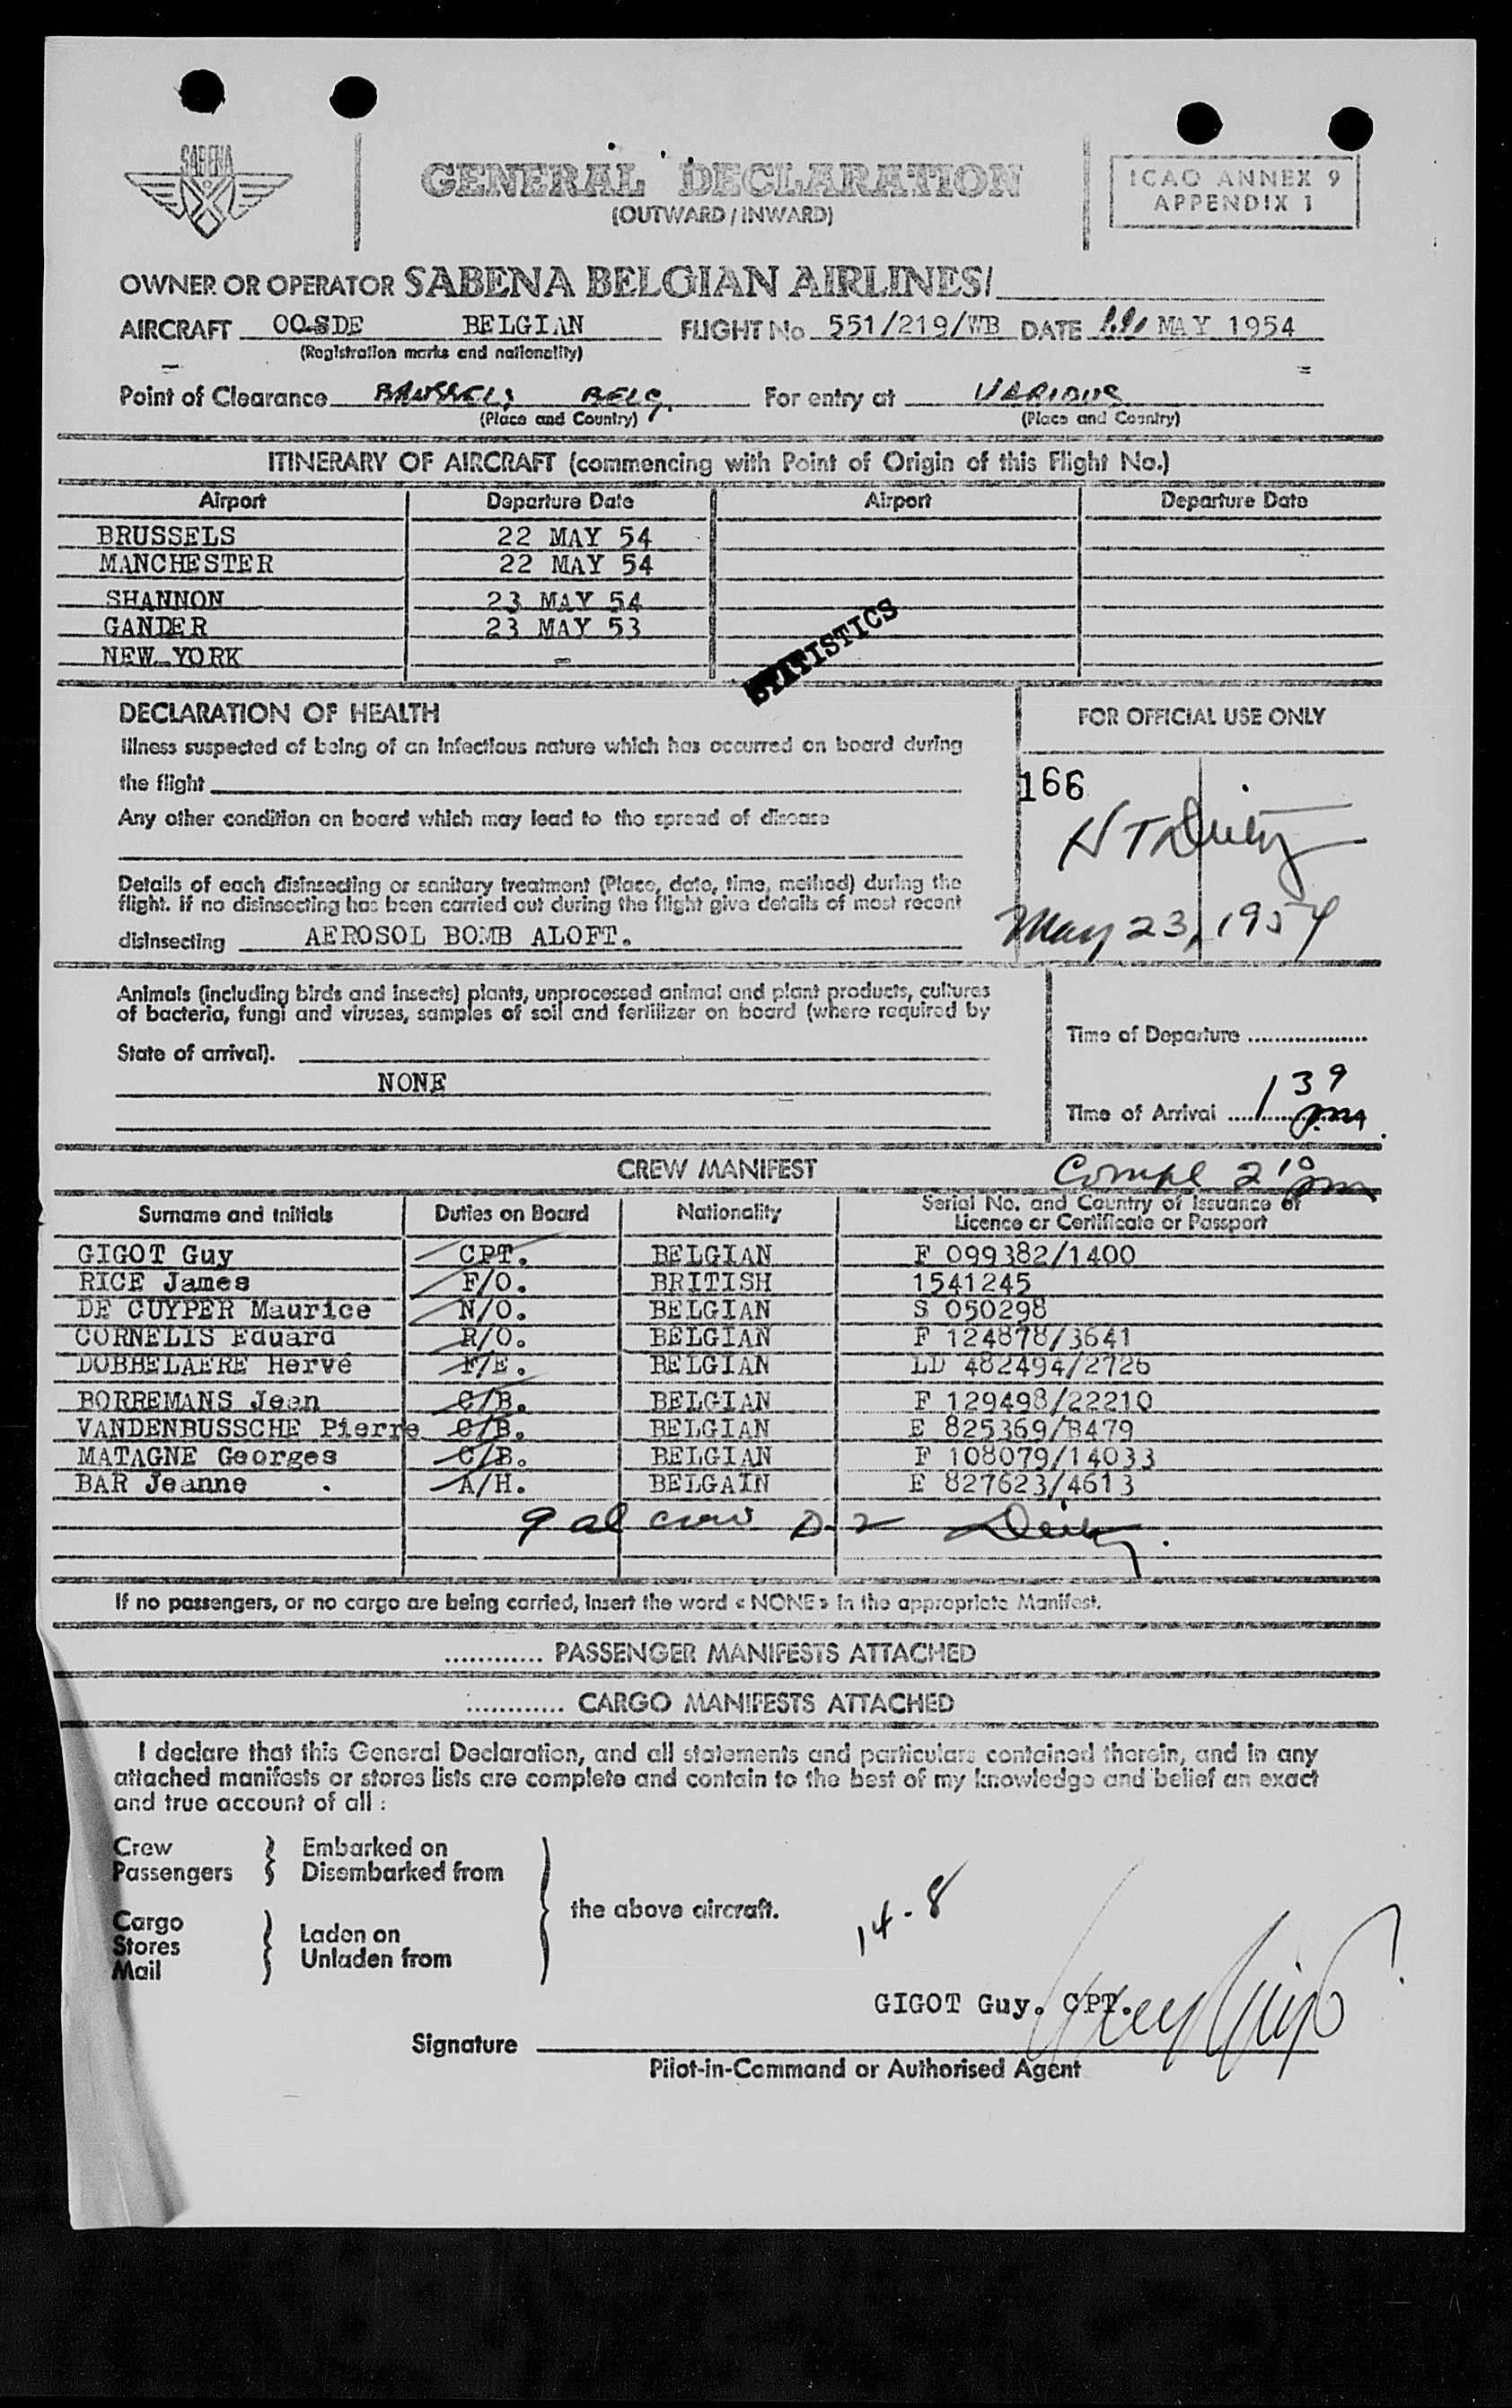 SABENA
GENERAL DECLARATION
(OUTWARD / INWARD)
ICAO ANNEX 9
APPENDIX 1
OWNER OR OPERATOR SABENA BELGIAN AIRLINES/
AIRCRAFT OO-SDE BELGIAN FLIGHT No 551/219/WB DATE 22 MAY 1954
(Registration marks and nationality)
Point of Clearance BRUSSELS BELG. For entry at VARIOUS
(Place and Country) (Place and Country)
ITINERARY OF AIRCRAFT (commencing with Point of Origin of this Flight No.)
Airport Departure Date Airport Departure Date
BRUSSELS 22 MAY 54
MANCHESTER 22 MAY 54
SHANNON 23 MAY 54
GANDER 23 MAY 53
NEW-YORK -
STATISTICS
DECLARATION OF HEALTH
FOR OFFICIAL USE ONLY
Illness suspected of being of an infectious nature which has occurred on board during
the flight
166
Any other condition on board which may lead to the spread of disease
Details of each disinsecting or sanitary treatment (Place, date, time, method) during the
flight. If no disinsecting has been carried out during the flight give details of most recent
disinsecting AEROSOL BOMB ALOFT.
May 23, 1954
Animals (including birds and insects) plants, unprocessed animal and plant products, cultures
of bacteria, fungi and viruses, samples of soil and fertilizer on board (where required by
State of arrival).
NONE
Time of Departure
Time of Arrival 1 39 pm
CREW MANIFEST
Compl 2 10 pm
Surname and Initials Duties on Board Nationality Serial No. and Country of Issuance of
Licence or Certificate or Passport
GIGOT Guy CPT. BELGIAN F 099382/1400
RICE James F/O. BRITISH 1541245
DE CUYPER Maurice N/O. BELGIAN S 050298
CORNELIS Eduard R/O. BELGIAN F 124878/3641
DOBBELAERE Hervé F/E. BELGIAN LD 482494/2726
BORREMANS Jean C/B. BELGIAN F 129498/22210
VANDENBUSSCHE Pierre C/B. BELGIAN E 825369/B479
MATAGNE Georges C/B. BELGIAN F 108079/14033
BAR Jeanne . A/H. BELGAIN E 827623/4613
9 al crew D-2
If no passengers, or no cargo are being carried, insert the word « NONE » in the appropriate Manifest.
............ PASSENGER MANIFESTS ATTACHED
............ CARGO MANIFESTS ATTACHED
I declare that this General Declaration, and all statements and particulars contained therein, and in any
attached manifests or stores lists are complete and contain to the best of my knowledge and belief an exact
and true account of all :
Crew
Passengers
Embarked on
Disembarked from
Cargo
Stores
Mail
Laden on
Unladen from
the above aircraft.
14-8
GIGOT Guy. CPT.
Signature
Pilot-in-Command or Authorised Agent